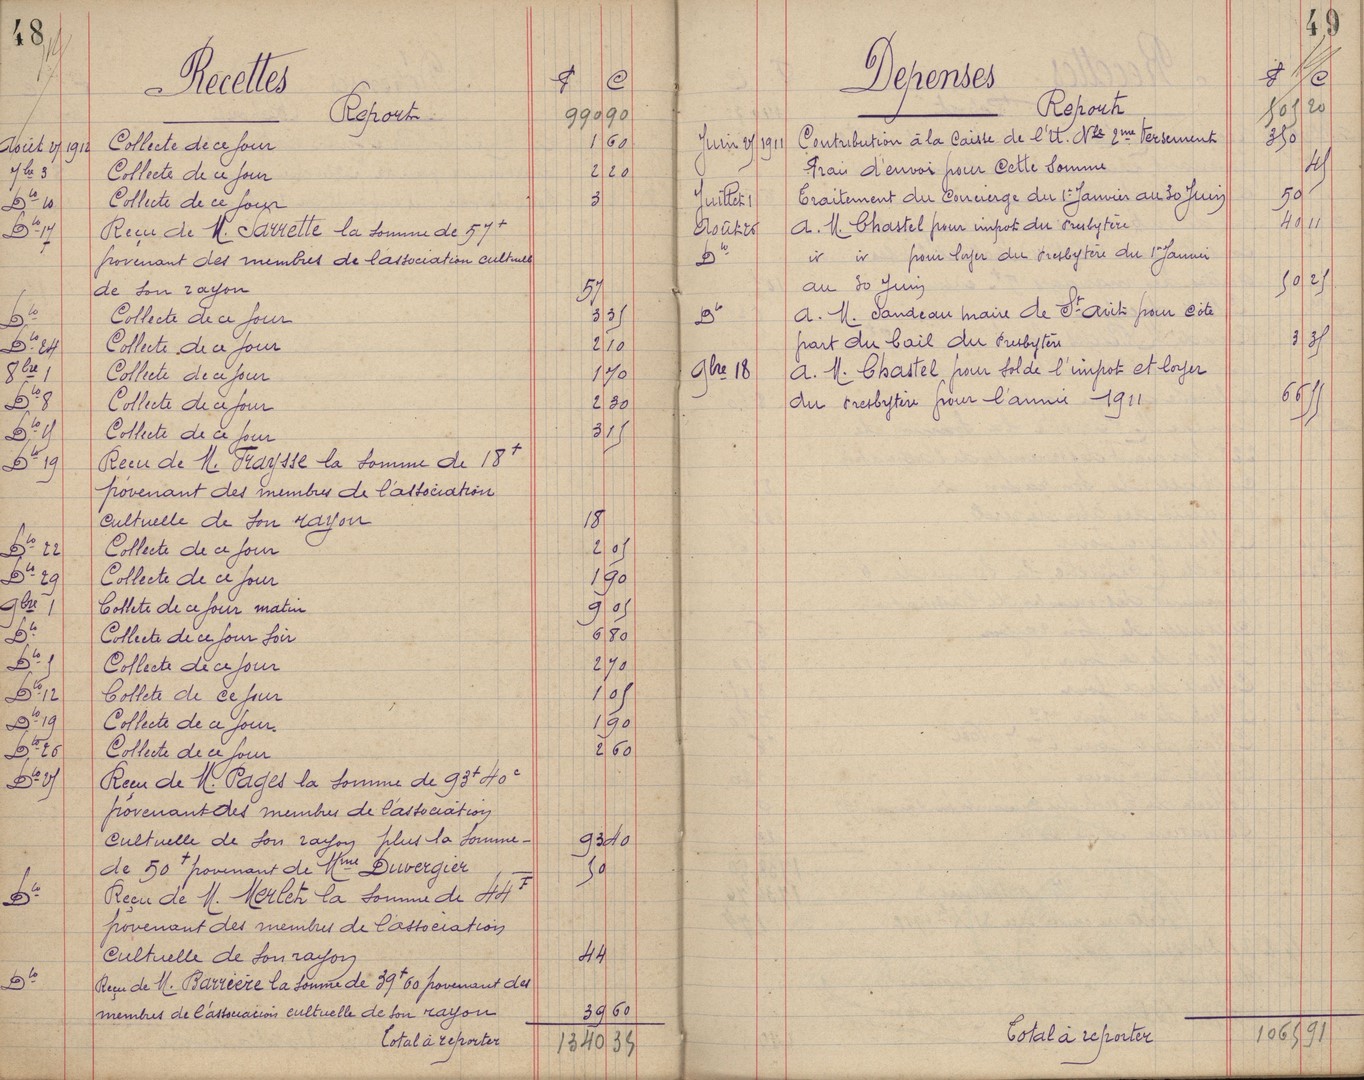 48
Recettes
F C
Report 990 90
Août 27 1912 Collecte de ce jour 1 60
7bre 3 Collecte de ce jour 2 20
Dto 10 Collecte de ce jour 3
Dto 17 Reçu de M. Sarrette la somme de 57f
provenant des membres de l'association cultuelle
de son rayon 57
Dto Collecte de ce jour 3 35
Dto 24 Collecte de ce jour 2 10
8bre 1 Collecte de ce jour 1 70
Dto 8 Collecte de ce jour 2 30
Dto 15 Collecte de ce jour 3 15
Dto 19 Reçu de M. Fraysse la somme de 18f
provenant des membres de l'association
cultuelle de son rayon 18
Dto 22 Collecte de ce jour 2 05
Dto 29 Collecte de ce jour 1 90
9bre 1 Collete de ce jour matin 9 05
Dto Collecte de ce jour soir 6 80
Dto 5 Collecte de ce jour 2 70
Dto 12 Collete de ce jour 1 05
Dto 19 Collecte de ce jour. 1 90
Dto 26 Collecte de ce jour 2 60
Dto 25 Reçu de M. Pagès la somme de 93f 40c
provenant des membres de l'association
cultuelle de son rayon plus la somme 93 40
de 50f provenant de Mme Duvergier 50
Dto Reçu de M. Merlet la somme de 44F
provenant des membres de l'association
cultuelle de son rayon 44
Dto Reçu de M. Barrière la somme de 39f 60 provenant des
membres de l'association cultuelle de son rayon 39 60
Total à reporter 1340 35
49
Depenses
F C
Report 505 20
Juin 25 1911 Contribution à la Caisse de l'U. Nle 2me Versement 350
Frai d'envoi pour cette somme 45
Juillet 1 Traitement du Concierge du 1er Janvier au 30 Juin 50
Août 26 a. M. Chastel pour impot du Presbytère 40 11
Dto ir ir pour loyer du Presbytère du 1er Janvier
au 30 Juin 50 25
Dto a. M. Jandeau maire de St Avit pour cote
part du bail du Presbytère 3 35
9bre 18 a. M. Chastel pour solde l'impot et loyer
du Presbytère pour l'année 1911 66 55
Total à reporter 1065 91